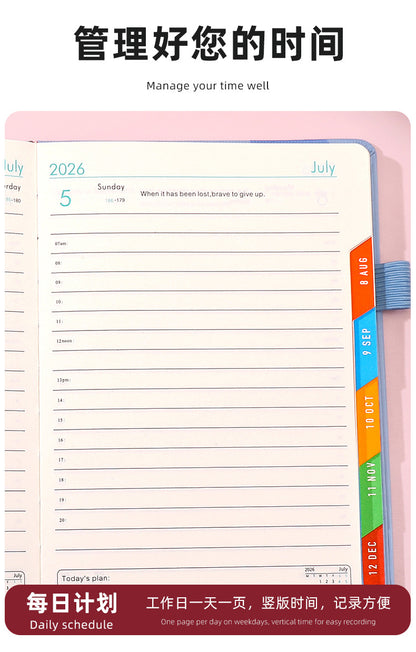 管理好您的时间
Manage your time well
July
2026
July
5
Sunday
186-179
When it has been lost,brave to give up.
rday
-180
07am:
08:
09:
10:
11:
12noon:
13pm:
14:
15:
16:
17:
18:
19:
20:
8 AUG
9 SEP
10 OCT
11 NOV
12 DEC
Today's plan:
2026
July
M T W T F S S
1 2 3 4 5
July
每日计划
Daily schedule
工作日一天一页，竖版时间，记录方便
One page per day on weekdays, vertical time for easy recording